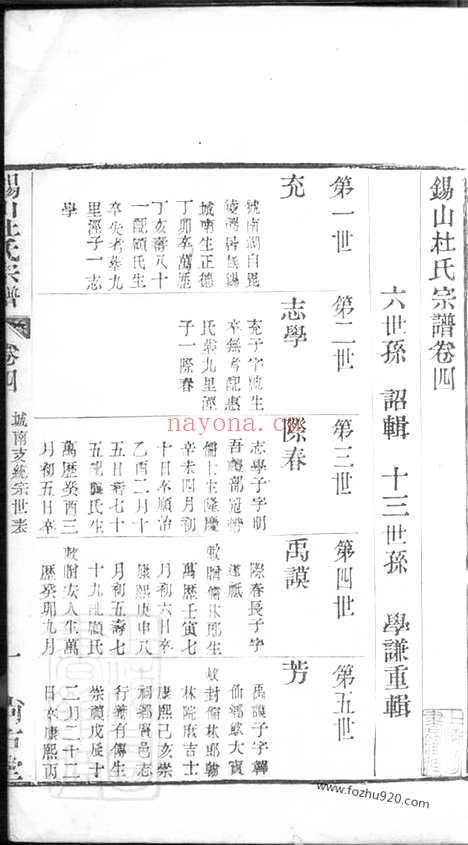 錫山杜氏宗譜卷四
六世孫 詔輯 十三世孫 學謙重輯
第一世 第二世 第三世 第四世 第五世
充 志學 際春 禹謨 芳
號南湖自毘
陵灣居無錫
城南生正德
丁卯卒萬歷
丁亥壽八十
一配顧氏生
卒失考葬九
里涇子一志
學
充子字 生
卒無考配惠
氏葬九里涇
子一際春
志學子字明
吾 部冠帶
儒士生隆慶
辛未四月初
十日卒順治
乙酉二月十
五日壽七十
五配龔氏生
萬歷癸酉三
月初五日卒
際春長子字
敕贈儒林郎生
萬歷壬寅七
月初六日卒
康熙庚申八
月初五壽七
十九配顧氏
敕贈安人生萬
歷癸卯九月
禹謨子字
仙 大賓
敕封儒林郎翰
林院庶吉士
康熙己亥崇
祠 邑志
行 有傳生
崇禎戊辰十
二月二十二
日卒康熙丙
錫山杜氏宗譜
卷四
城南支統宗世表
一
尚古堂
nayona.cn
www.fozhu920.com